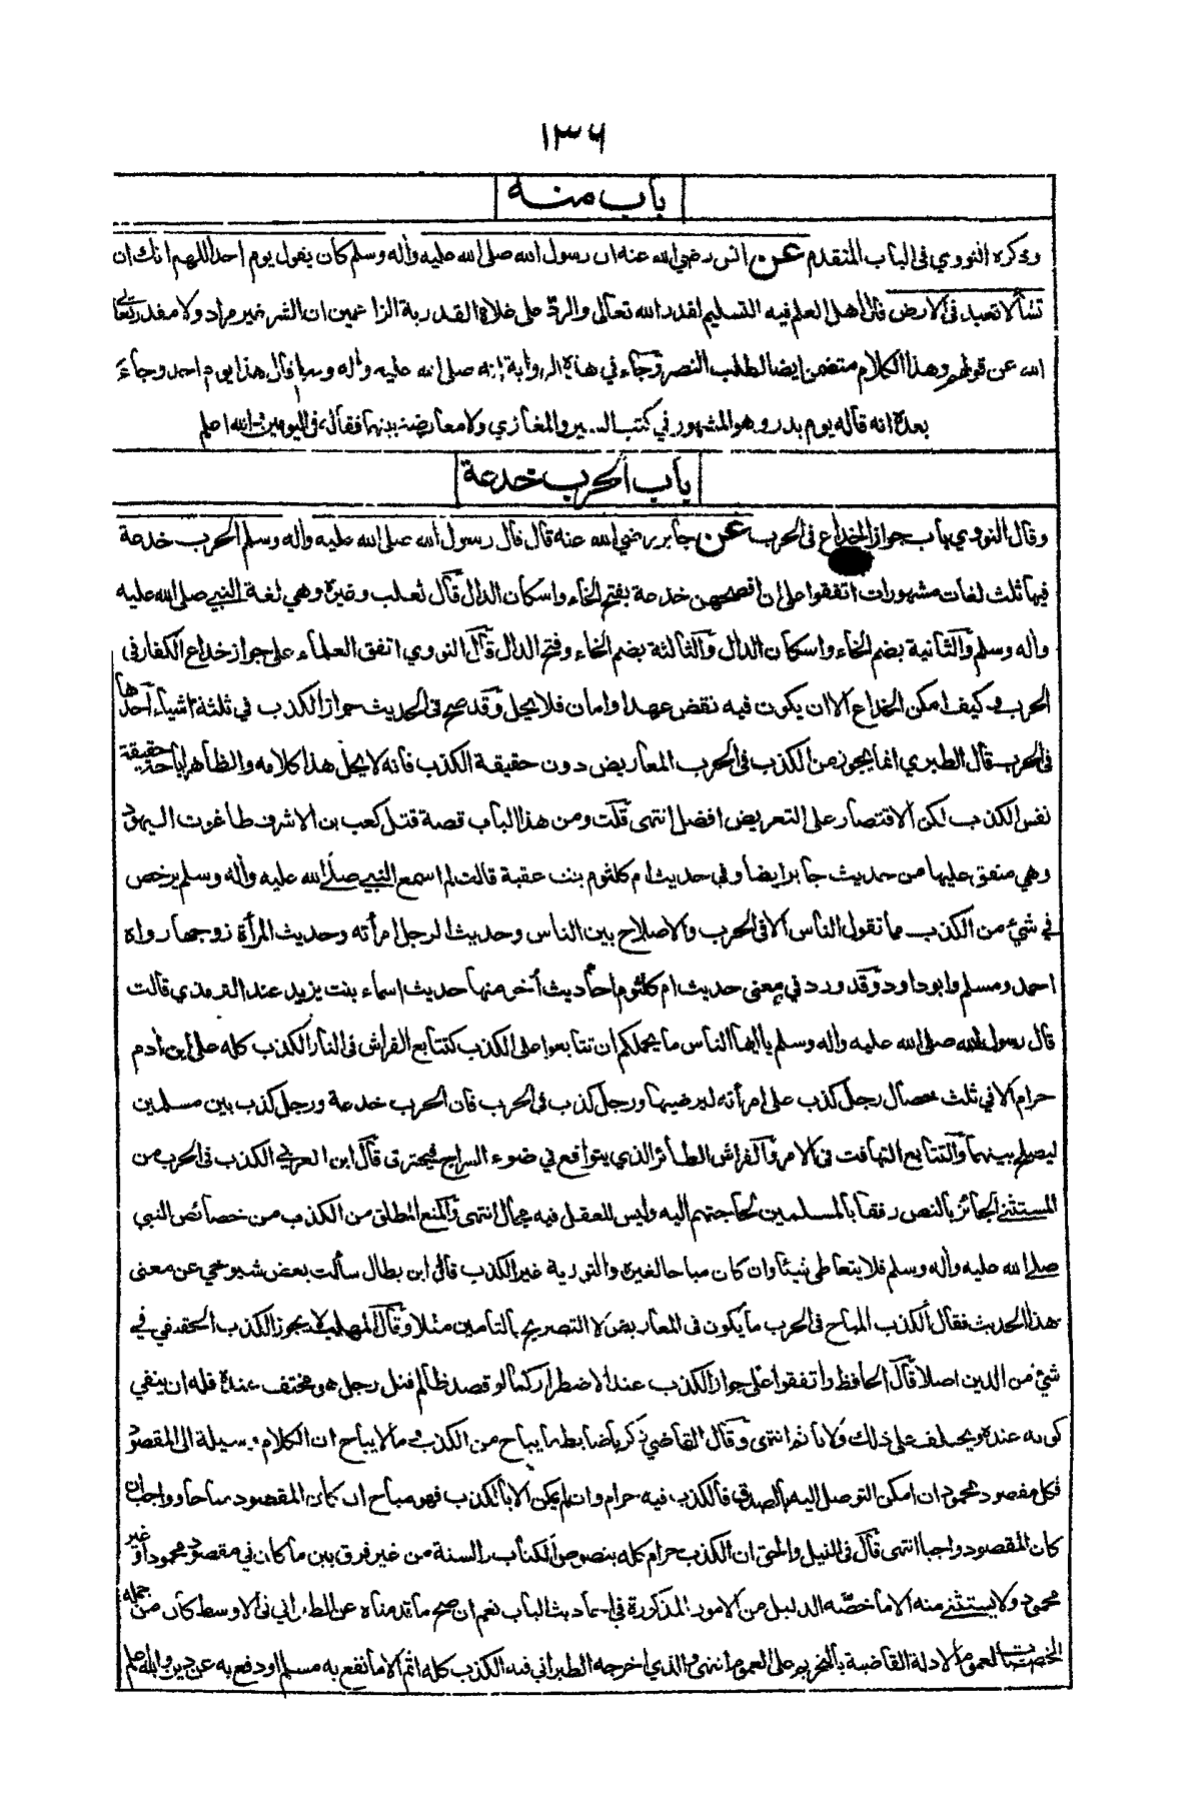 ١٣٦
باب منه
وذكره النووي في الباب المتقدم عن انس رضي الله عنه ان رسول الله صلى الله عليه واله وسلم كان يقول يوم احد اللهم انك ان
تشأ لا تعبد في الارض قال اهل العلم فيه التسليم لقدر الله تعالى والرد على غلاة القدرية الزاعمين ان الشر غير مراد ولا مقدر تعالى
الله عن قولهم وهذا الكلام متضمن ايضا لطلب النصر وجاء في هذه الرواية انه صلى الله عليه واله وسلم قال هذا يوم احد وجاء
بعده انه قاله يوم بدر وهو المشهور في كتب السير والمغازي ولا معارضة بينهما فقاله في اليومين والله اعلم
باب الحرب خدعة
وقال النووي باب جواز الخداع في الحرب عن جابر رضي الله عنه قال قال رسول الله صلى الله عليه واله وسلم الحرب خدعة
فيها ثلث لغات مشهورات اتفقوا على ان افصحهن خدعة بفتح الخاء واسكان الدال قال ثعلب وغيره وهي لغة النبي صلى الله عليه
واله وسلم والثانية بضم الخاء واسكان الدال والثالثة بضم الخاء وفتح الدال قال النووي اتفق العلماء على جواز خداع الكفار في
الحرب وكيف امكن الخداع الا ان يكون فيه نقض عهد او امان فلا يحل وقد صح في الحديث جواز الكذب في ثلثة اشياء احدها
في الحرب قال الطبري انما يجوز من الكذب في الحرب المعاريض دون حقيقة الكذب فانه لا يحل هذا كلامه والظاهر اباحة حقيقة
نفس الكذب لكن الاقتصار على التعريض افضل انتهى قلت ومن هذا الباب قصة قتل كعب بن الاشرف طاغوت اليهود
وهي متفق عليها من حديث جابر ايضا وفي حديث ام كلثوم بنت عقبة قالت لم اسمع النبي صلى الله عليه واله وسلم يرخص
في شيء من الكذب مما تقول الناس الا في الحرب والاصلاح بين الناس وحديث الرجل امرأته وحديث المرأة زوجها رواه
احمد ومسلم وابو داود وقد ورد في معنى حديث ام كلثوم احاديث أخر منها حديث اسماء بنت يزيد عند الترمذي قالت
قال رسول الله صلى الله عليه واله وسلم يا ايها الناس ما يحملكم ان تتابعوا على الكذب كتتابع الفراش في النار الكذب كله على ابن أدم
حرام الا في ثلث خصال رجل كذب على امرأته ليرضيها ورجل كذب في الحرب فان الحرب خدعة ورجل كذب بين مسلمين
ليصلح بينهما والتتابع التهافت في الامر والفراش الطائر الذي يتواقع في ضوء السراج فيحترق قال ابن العربي الكذب في الحرب من
المستثنى الجائز بالنص رفقا بالمسلمين لحاجتهم اليه وليس للعقل فيه مجال انتهى والمنع المطلق من الكذب من خصائص النبي
صلى الله عليه واله وسلم فلا يتعاطى شيئا وان كان مباحا لغيره والتورية غير الكذب قال ابن بطال سألت بعض شيوخي عن معنى
هذا الحديث فقال الكذب المباح في الحرب ما يكون في المعاريض لا التصريح بالتامين مثلا وقال المهلب لا يجوز الكذب الحقيقي في
شيء من الدين اصلا قال الحافظ واتفقوا على جواز الكذب عند الاضطرار كما لو قصد ظالم قتل رجل هو مختف عنده فله ان ينفي
كونه عنده ويحلف على ذلك ولا يأثم انتهى وقال القاضي زكريا ضابط ما يباح من الكذب وما لا يباح ان الكلام وسيلة الى المقصود
فكل مقصود محمود ان امكن التوصل اليه بالصدق فالكذب فيه حرام وان لم يمكن الا بالكذب فهو مباح ان كان المقصود مباحا وواجب ان
كان المقصود واجبا انتهى قال في النيل والحق ان الكذب حرام كله بنصوص الكتاب والسنة من غير فرق بين ما كان في مقصود محمود او غير
محمود ولا يستثنى منه الا ما خصه الدليل من الامور المذكورة في احاديث الباب نعم ان صح ما قدمناه عن الطبراني في الاوسط كان من جملة
المخصصات لعموم الادلة القاضية بالتحريم على العموم انتهى والذي اخرجه الطبراني فيه الكذب كله اثم الا ما نفع به مسلم او دفع به عن دين والله اعلم